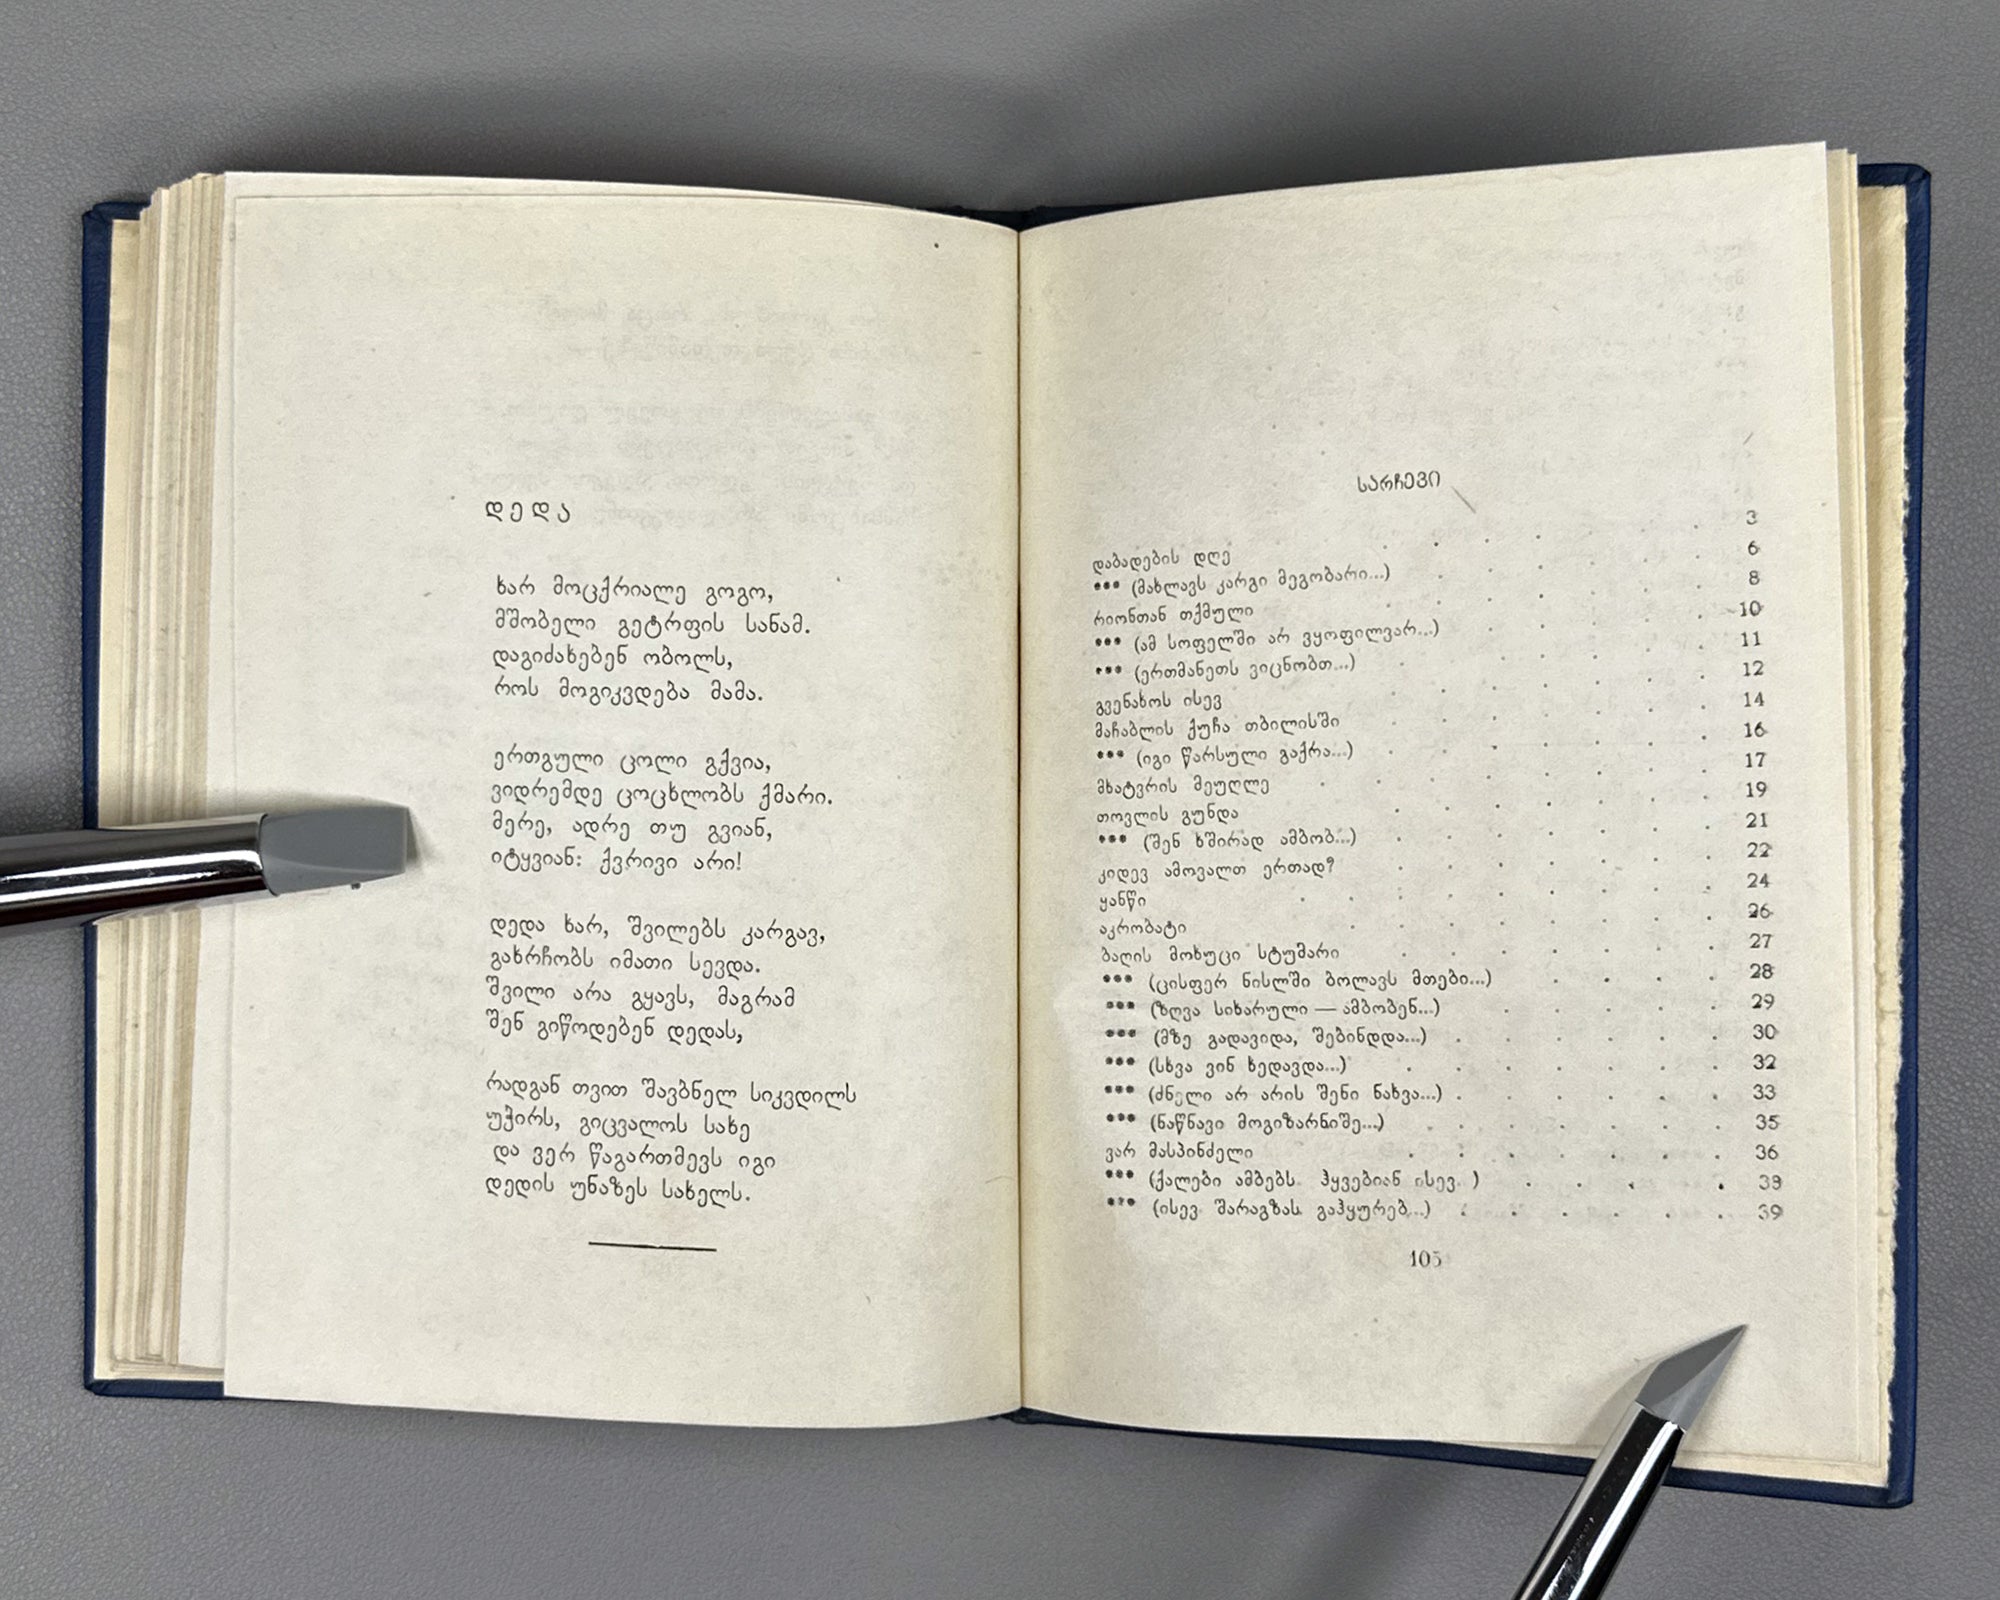 დედა
ხარ მოცქრიალე გოგო,
მშობელი გეტრფის სანამ.
დაგიძახებენ ობოლს,
როს მოგიკვდება მამა.
ერთგული ცოლი გქვია,
ვიდრემდე ცოცხლობს ქმარი.
მერე, ადრე თუ გვიან,
იტყვიან: ქვრივი არი!
დედა ხარ, შვილებს კარგავ,
გახრჩობს იმათი სევდა.
შვილი არა გყავს, მაგრამ
შენ გიწოდებენ დედას,
რადგან თვით შავბნელ სიკვდილს
უჭირს, გიცვალოს სახე
და ვერ წაგართმევს იგი
დედის უნაზეს სახელს.
სარჩევი
დაბადების დღე . . . . . . . 3
*** (მახლავს კარგი მეგობარი...) . . . . . . 6
რიონთან თქმული . . . . . . . 8
*** (ამ სოფელში არ ვყოფილვარ...) . . . . . 10
*** (ერთმანეთს ვიცნობთ...) . . . . . . 11
გვენახოს ისევ . . . . . . . 12
მაჩაბლის ქუჩა თბილისში . . . . . . . 14
*** (იგი წარსული გაქრა...) . . . . . . . 16
მხატვრის მეუღლე . . . . . . . . 17
თოვლის გუნდა . . . . . . . 19
*** (შენ ხშირად ამბობ...) . . . . . . . 21
კიდევ ამოვალთ ერთად? . . . . . . . 22
ყანწი . . . . . . . . . 24
აკრობატი . . . . . . . 26
ბაღის მოხუცი სტუმარი . . . . . . . 27
*** (ცისფერ ნისლში ბოლავს მთები...) . . . . 28
*** (ზღვა სიხარული — ამბობენ...) . . . . . 29
*** (მზე გადავიდა, შებინდდა...) . . . . . . 30
*** (სხვა ვინ ხედავდა...) . . . . . . . 32
*** (ძნელი არ არის შენი ნახვა...) . . . . . . 33
*** (ნაწნავი მოგიზარნიშე...) . . . . . . 35
ვარ მასპინძელი . . . . . . . 36
*** (ქალები ამბებს ჰყვებიან ისევ ) . . . . . 38
*** (ისევ შარაგზას გაჰყურებ...) . . . . . . 39
105